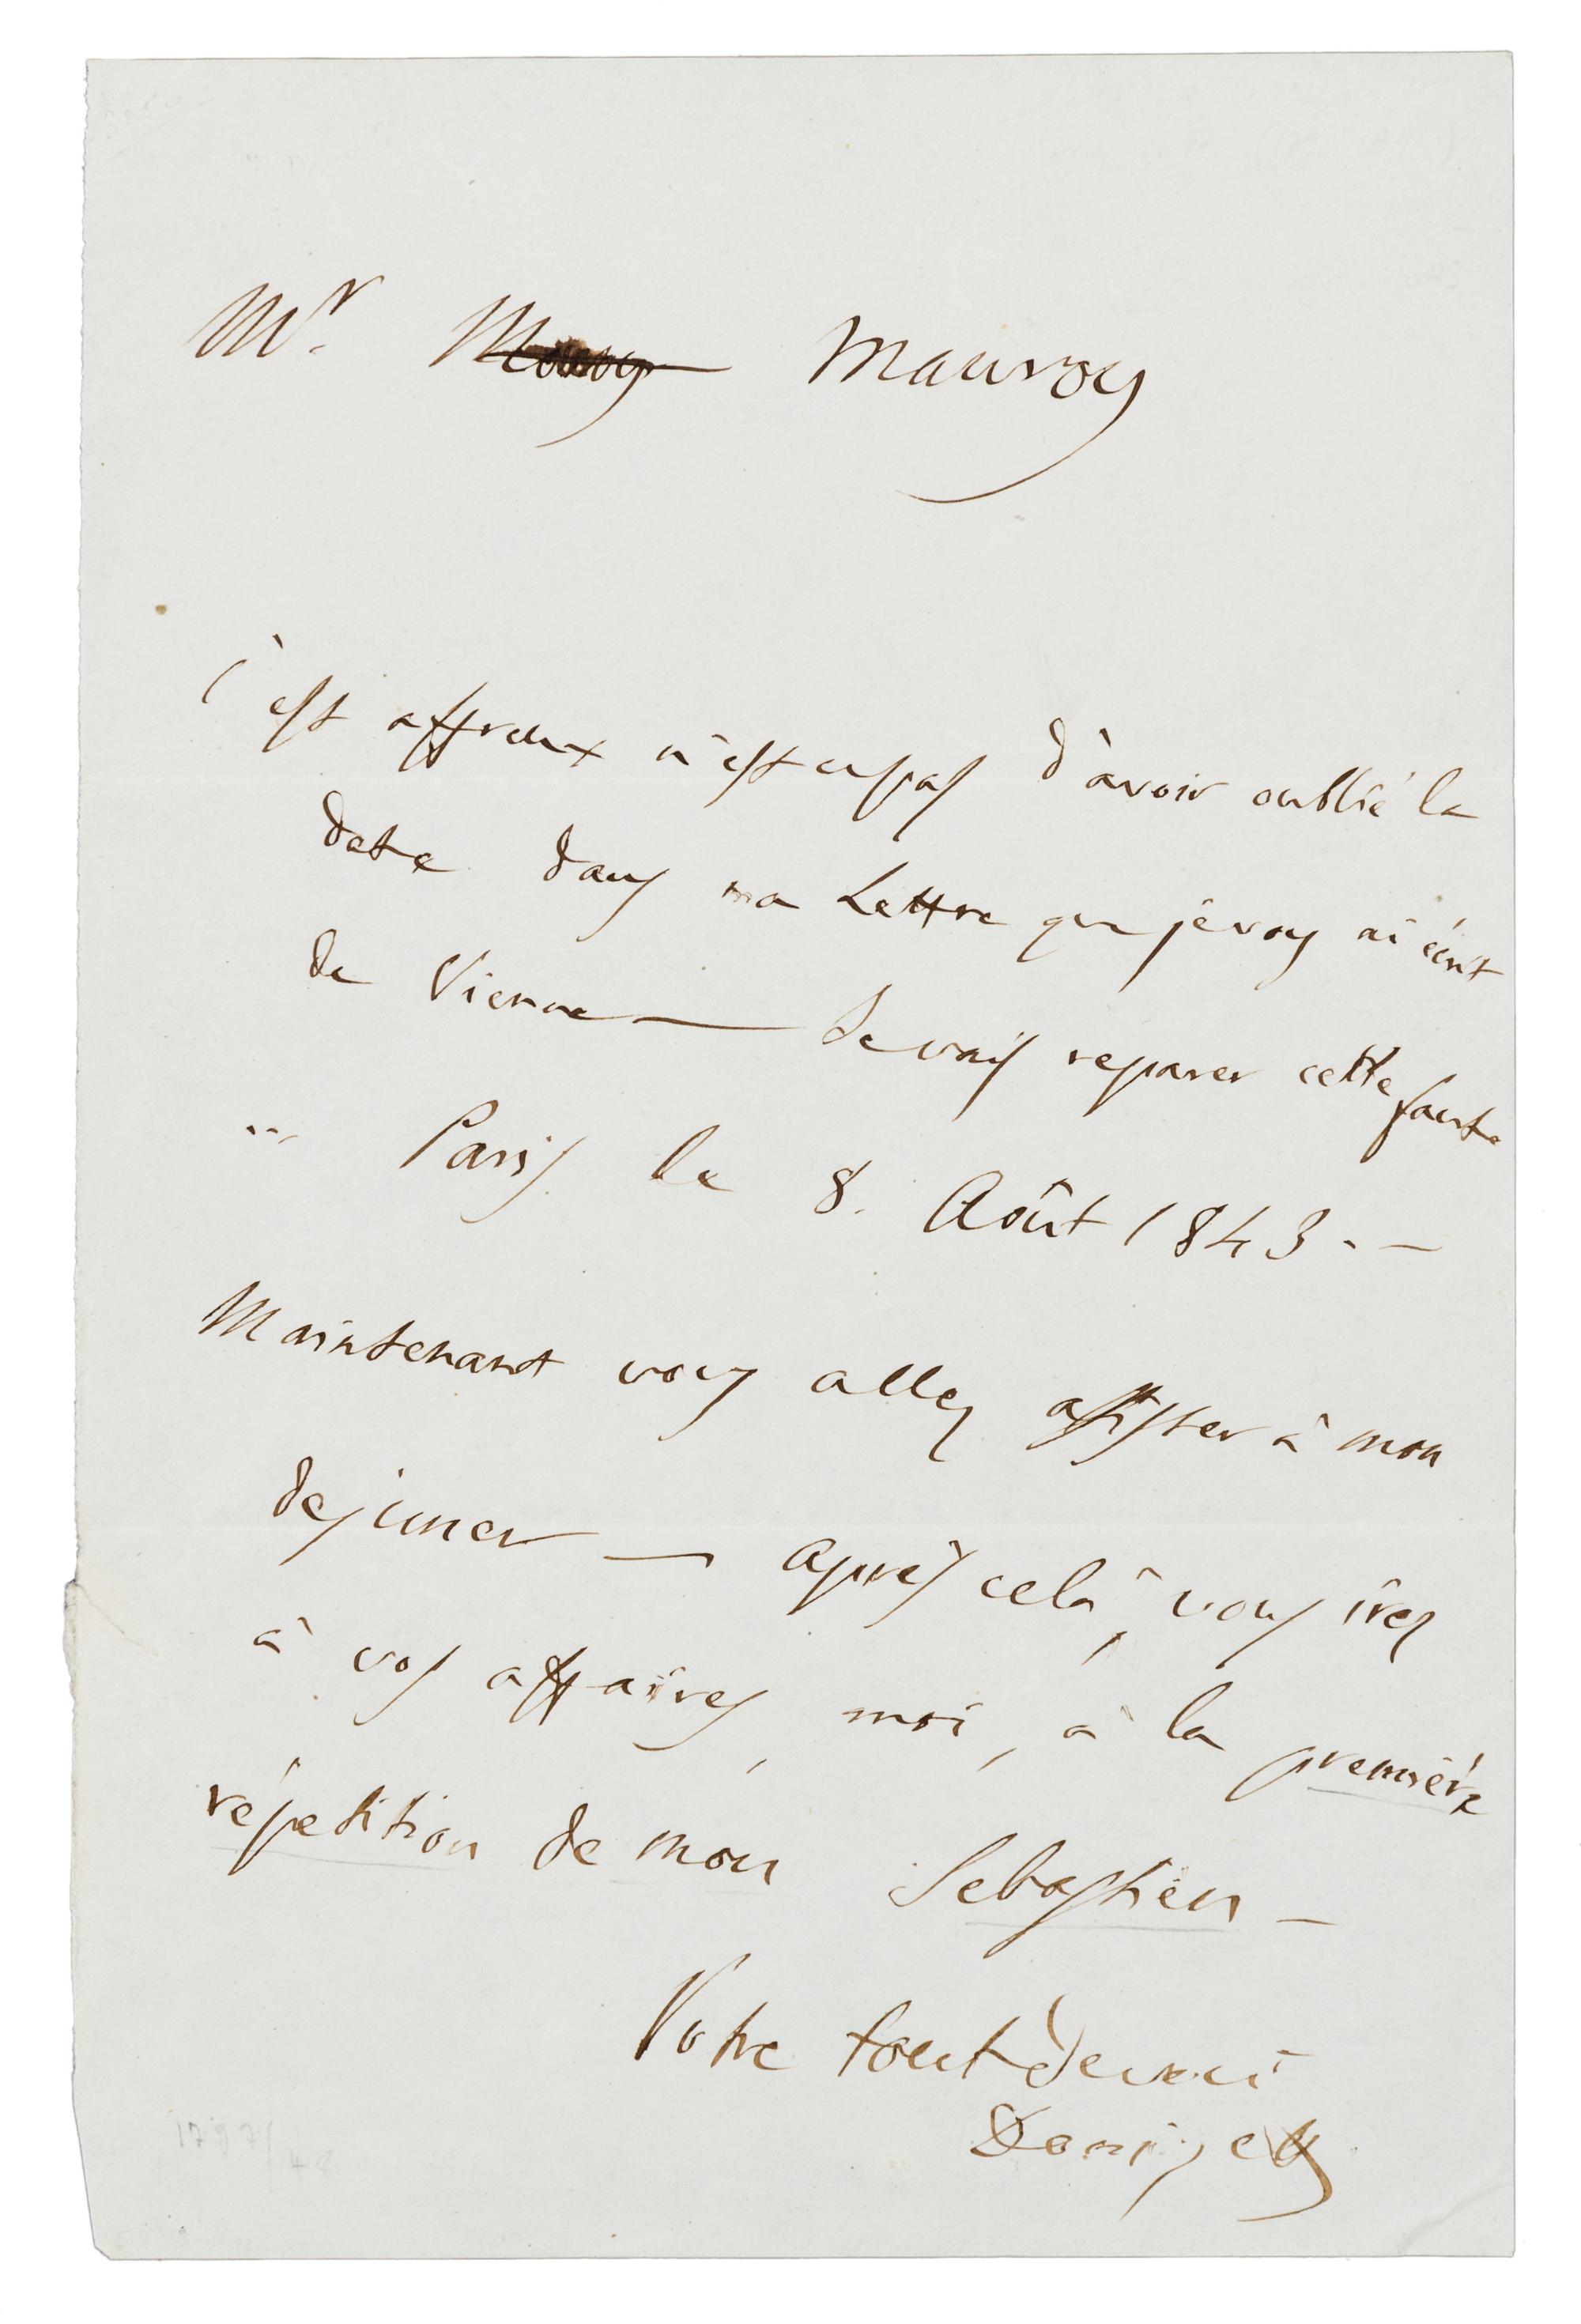 Mr. Mauroy
C'est affreux n'est ce pas d'avoir oublié la
date dans ma Lettre que je vous ai écrit
de Vienne — Je vais reparer cette faute
" Paris le 8. Août 1843. —
Maintenant vous allez assister à mon
dejuner — après celà, vous irez
à vos affaires, moi, à la première
répetition de mon Sebastien —
Votre tout devoué
Donizetti